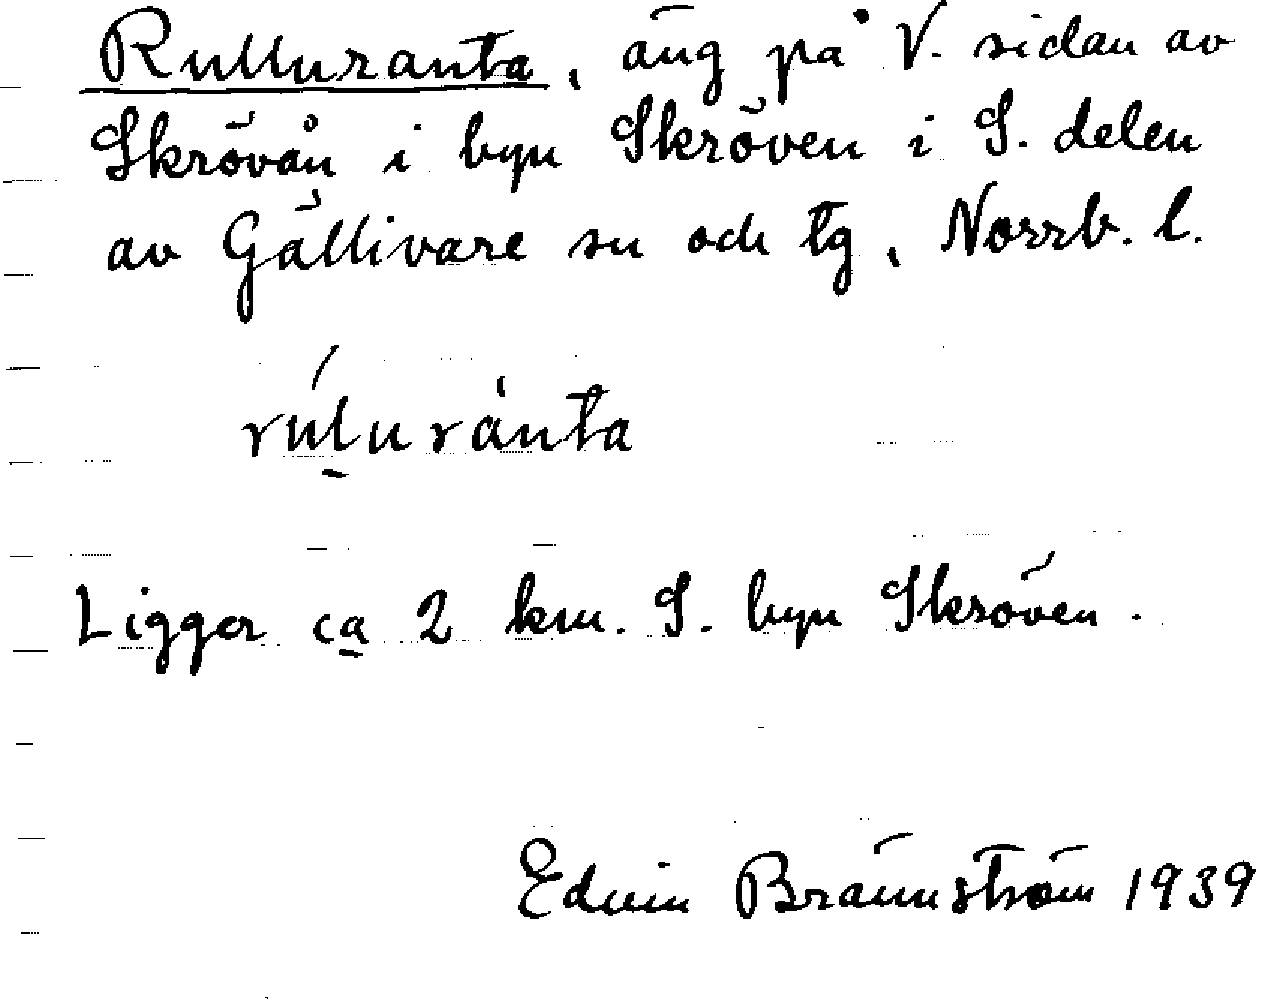 Rulluranta, äng på V. sidan av
Skrövån i byn Skröven i S. delen
av Gällivare sn och tg, Norrb. l.
ruluránta
Ligger ca 2 km. S. byn Skröven.
Edvin Brännström 1939